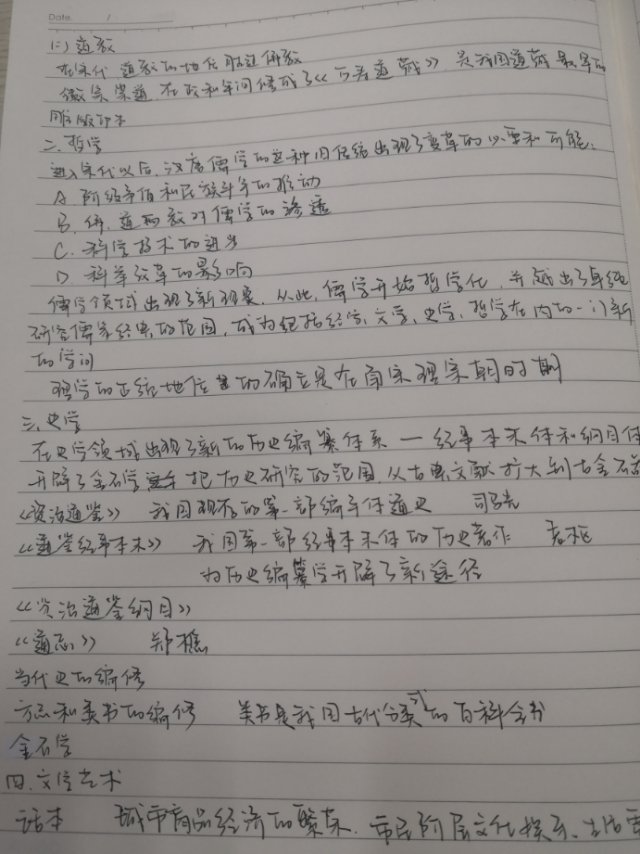 Date. /
(二) 道教
在宋代 道教的地位超过佛教
徽宗崇道,在政和年间修成了《万寿道藏》,是我国道藏最早的
雕版印本
二、哲学
进入宋代以后,汉唐儒学的这种旧传统出现了变革的必要和可能:
A. 阶级矛盾和民族斗争的推动
B. 佛、道两教对儒学的渗透
C. 科学技术的进步
D. 科举改革的影响
儒学领域出现了新现象,从此,儒学开始哲学化,并越出了单纯
研究儒家经典的范围,成为包括经学、文学、史学、哲学在内的一门新
的学问
理学的正统地位的确立是在南宋理宗朝时期
三、史学
在史学领域出现了新的历史编纂体系 — 纪事本末体和纲目体
开辟了金石学 把历史研究的范围,从古典文献扩大到古金石
《资治通鉴》 我国现存的第一部编年体通史 司马光
《通鉴纪事本末》 我国第一部纪事本末体的历史著作 袁枢
为历史编纂学开辟了新途径
《资治通鉴纲目》
《通志》 郑樵
当代史的编修
方志和类书的编修 类书是我国古代分类式的百科全书
金石学
四、文学艺术
话本 城市商品经济的繁荣、市民阶层文化娱乐、生活